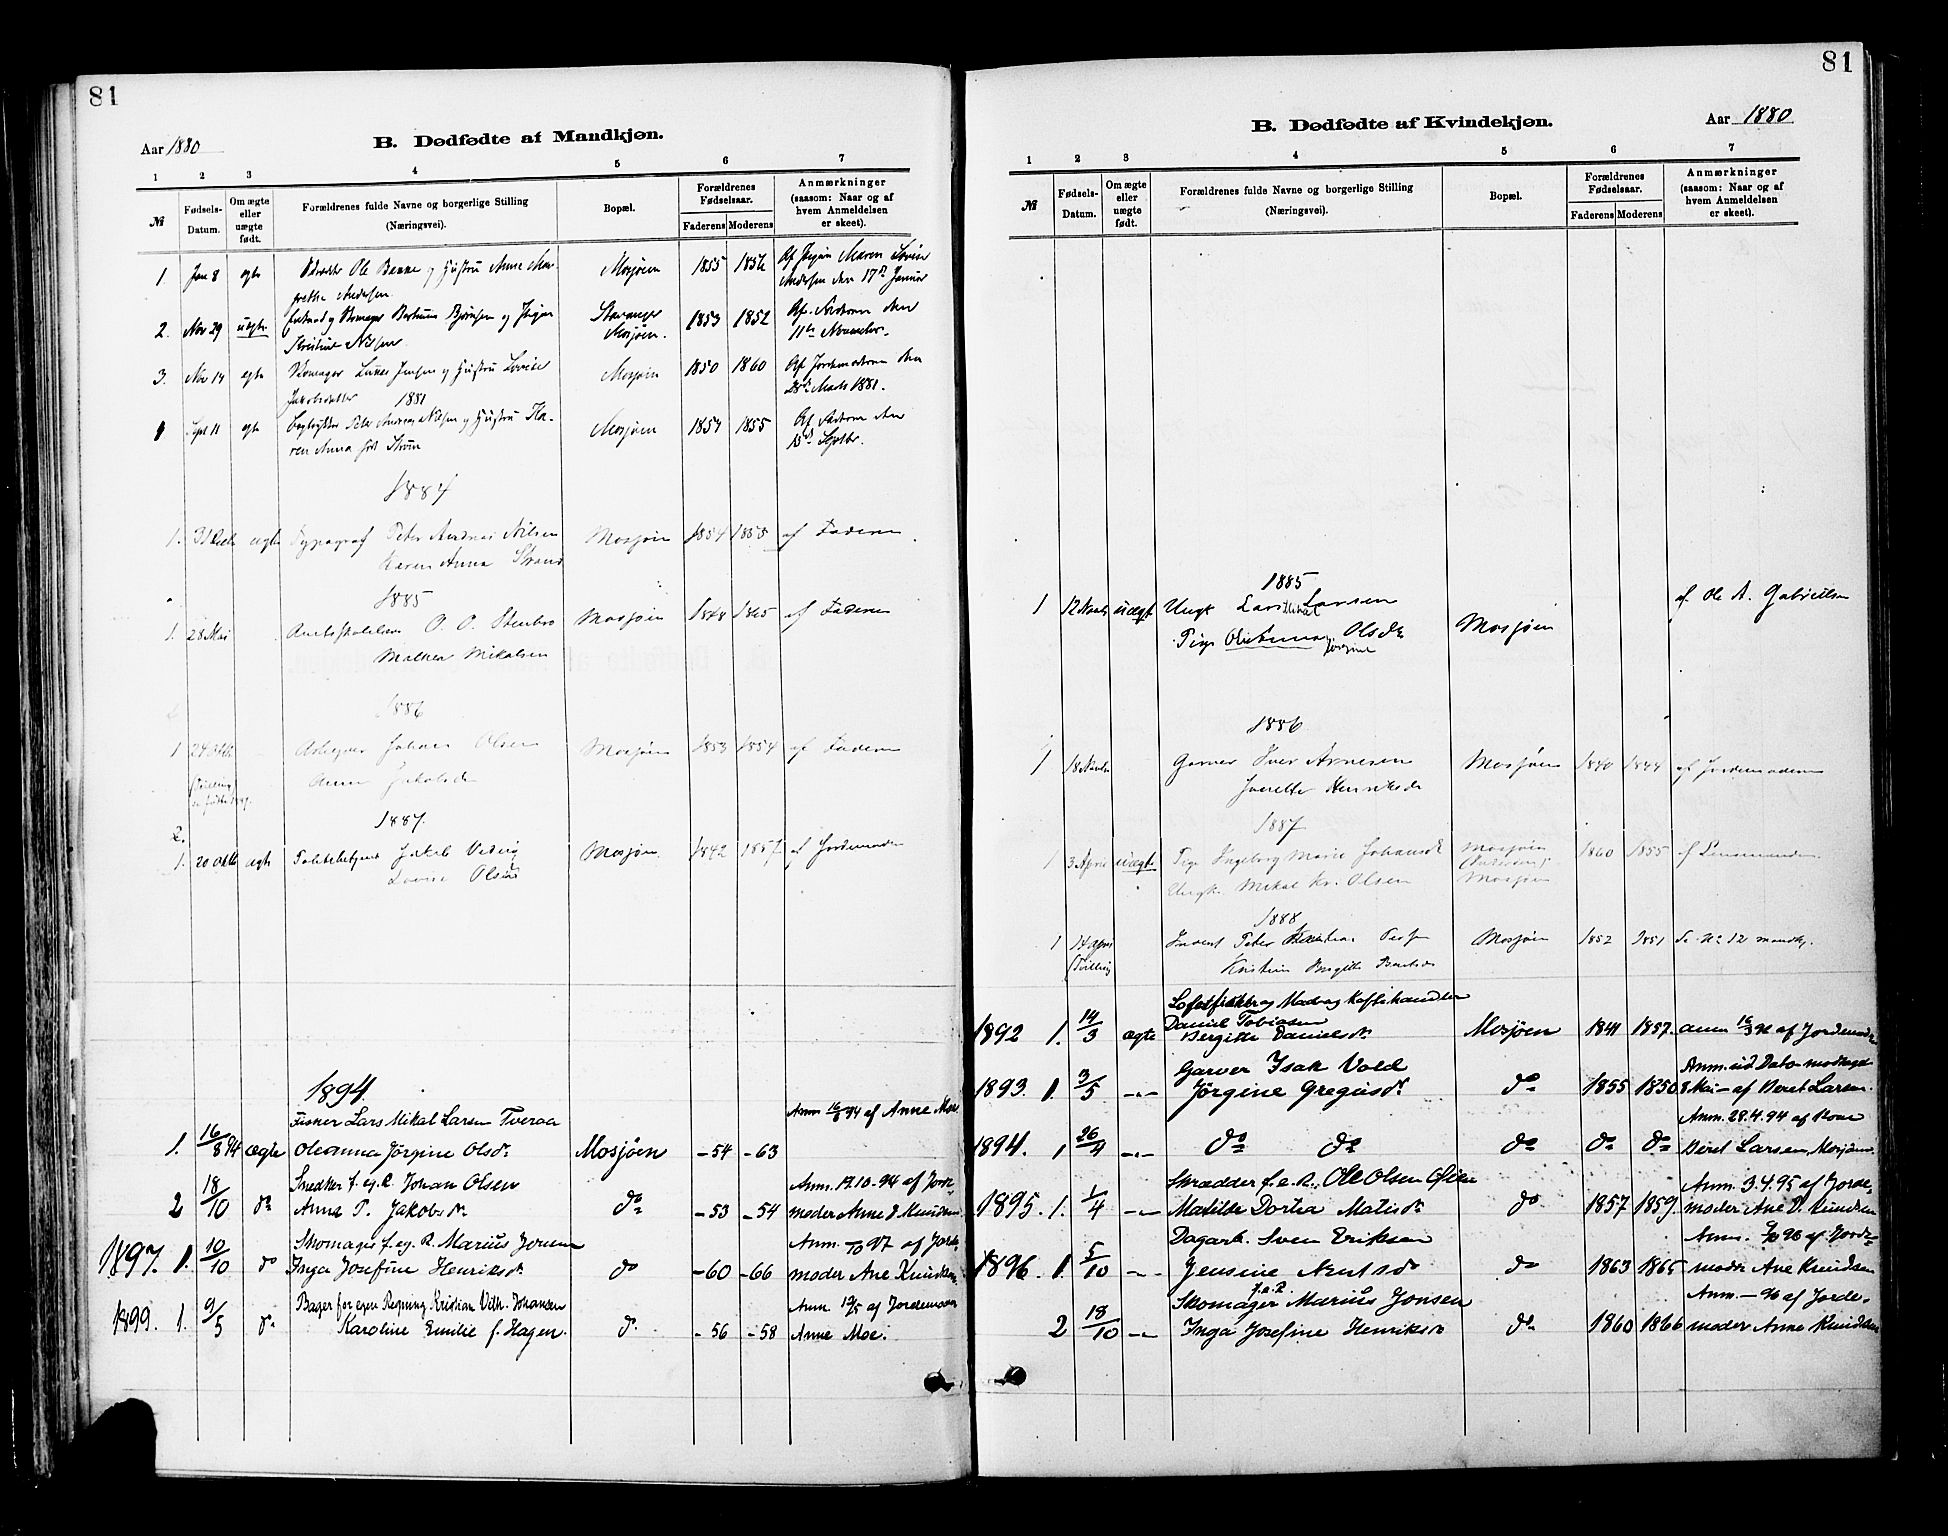 81
Aar 1880
B. Dødfødte af Mandkjøn.
1 2 3 4 5 6 7
№
Fødsels-Datum.
Om ægte eller uægte født.
Forældrenes fulde Navne og borgerlige Stilling (Næringsvei).
Bopæl.
Forældrenes Fødselsaar.
Faderens Moderens
Anmærkninger (saasom: Naar og af hvem Anmeldelsen er skeet).
1 Jan 8 egte Ole Benne og Hustru Anne Mar- Mosjøen 1855 1856 Af Pigen Maren Lovise
grethe Andersen Andersen den 17de Januar
2. Nov 29 uegte Skomager Bjørnsen og Pigen Stavanger 1853 1852 den
Kristine Nilsen Mosjøen. 11te November.
3. Nov 14 egte Skomager Jensen og Hustru Lovise Mosjøen 1850 1860 Af Jordemoderen den
Jakobsdatter 28de Marts 1881.
1881
1 Sept 11 egte Bogtrykker Peter Andreas Nilsen og Hustru Ka- Mosjøen 1854 1855 Af den
ren Anna født Strøm 15de Septbr.
1884
1. 31 ægte Typograf Peter Andreas Nilsen Mosjøen 1854 1855 af Faderen
Karen Anna Strand
1885
1. 28 Mai Amtsskolelærer O. O. Stenbro Mosjøen 1848 1865 af Faderen
Mathea Mikalsen
1886
1 24 Johan Olsen Mosjøen 1853 1854 af Faderen
Anna Jakobsd
(Tvilling
1887.
2.
1. 20 Oktb ægte Politibetjent Jakob Mosjøen 1842 1857 af Jordemoder
Lovise Olsen
1894.
Fisker Lars Mikal Larsen Tveraa Anm. 16/8 94 af Anne Moe.
1. 16/8 94 ægte Oleanna Jørgine Olsdr Mosjøen -54 -63
Snedker f. eg. R. Johan Olsen Anm. 19.10.-94 af Jorde-
2 18/10 do Anna P. Jakobsdr do -53 -54 moder Anne P. Knudsen
Skomager f. eg. R. Marius Jonsen Anm. /10 97 af Jorde-
1897. 1. 10/10 do Inga Josefine Henriksdr do -60 -66 moder Ane Knudsen
Bager for egen Regning Kristian Vilh. Johansen Anm. 12/5 af Jordemoder
1899. 1. 9/5 do Karoline Emilie f. Hagen. do -56 -58 Anne Moe.
81
B. Dødfødte af Kvindekjøn.
Aar 1880
1 2 3 4 5 6 7
№
Fødsels-Datum.
Om ægte eller uægte født.
Forældrenes fulde Navne og borgerlige Stilling (Næringsvei).
Bopæl.
Forældrenes Fødselsaar.
Faderens Moderens
Anmærkninger (saasom: Naar og af hvem Anmeldelsen er skeet).
1885
1 12 Marts uægte Ungk Lars Mikal Larsen Mosjøen af Ole A. Gabrielsen
Pige Oleanna Jørgine Olsdr
1886
1 18 Marts Garver Iver Arnesen Mosjøen 1840 1844 af Jordemoderen
Iverette Henriksdr
1887
1 3 April uægte Pige Ingeborg Marie Johansdr Mosjøen 1860 1855 af Lensmanden
Ungk. Mikal Kr. Olsen Mosjøen
1888
1 14 April Peter Mosjøen 1852 1851 Se No 12 mandkj.
(Tvilling Kristine Birgitte
Lofotfisker og Madvog Kaffehandler
1892 1. 14/3 ægte Daniel Tobiasen Mosjøen 1841 1857. anm 16/3 92 af Jordemoder
Bergitte Danielsdr
Garver Isak Vold Anm. ud Daba modtaget
1893. 1. 3/5 -"- Jørgine Gregusdr do 1855 1850 8 Mai - af Beret Larsen.
Anm. 28.4.94 af Kone
1894. 1 26/4 -"- do do do do do Beret Larsen, Mosjøen
Skrædder f. e. R., Ole Olsen Anm. 3.4.95 af Jorde-
1895. 1. 1/4 -"- Matilde Dortea Matisdr do 1857 1859. moder Ane P. Knudsen
Dagarb. Sven Eriksen Anm. /10 96 af Jorde-
1896. 1. 5/10 -"- Jensine Arntsdr do 1863 1865 moder Ane Knudsen
Skomager f.e.R. Marius Jonsen Anm. - 96 af Jorde-
2 18/10 -"- Inga Josefine Henriksdr do 1860 1866 moder Anne Knudsen